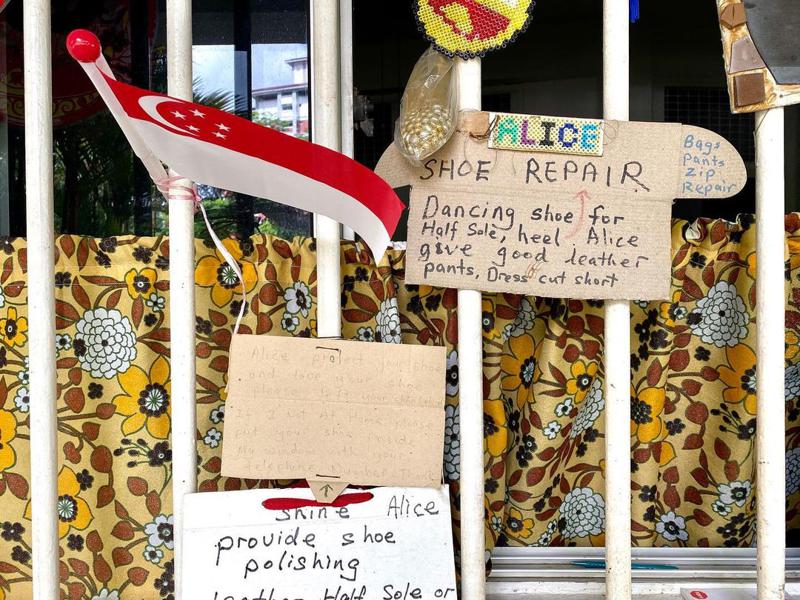 ALICE
SHOE REPAIR
Bags
Pants
Zip
Repair
Dancing shoe for
Half Sole, heel Alice
give good leather
pants, Dress cut short
Alice protect your shoe
and love your shoe
please left your shoe
If I not At Home please
put your shoe inside
My window with your
telephone Number
shine Alice
provide shoe
polishing
leather Half Sole or